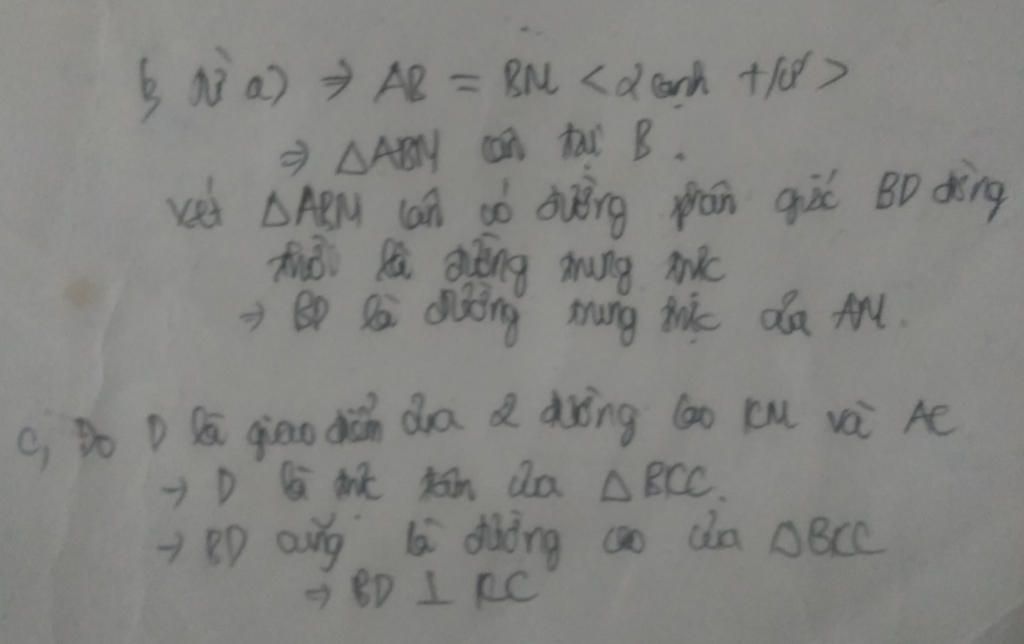 b, Từ a) => AB = BM <2 cạnh t/ư>
=> △ABM cân tại B.
Xét △ABM cân có đường phân giác BD đồng
thời là đường trung trực
→ BD là đường trung trực của AM.
c, Do D là giao điểm của 2 đường cao KM và AC
→ D là trực tâm của △BCC.
→ BD cũng là đường cao của △BCC
→ BD ⊥ KC